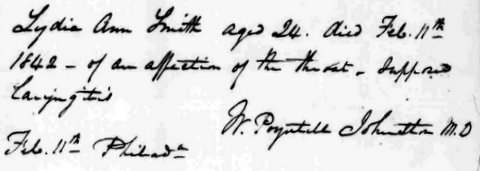 Lydia Ann Smith aged 24. died Feb. 11th
1842 - of an affection of the throat - supposed
Laryngitis
W. Poyntell Johnston M.D
Feb. 11th Philada